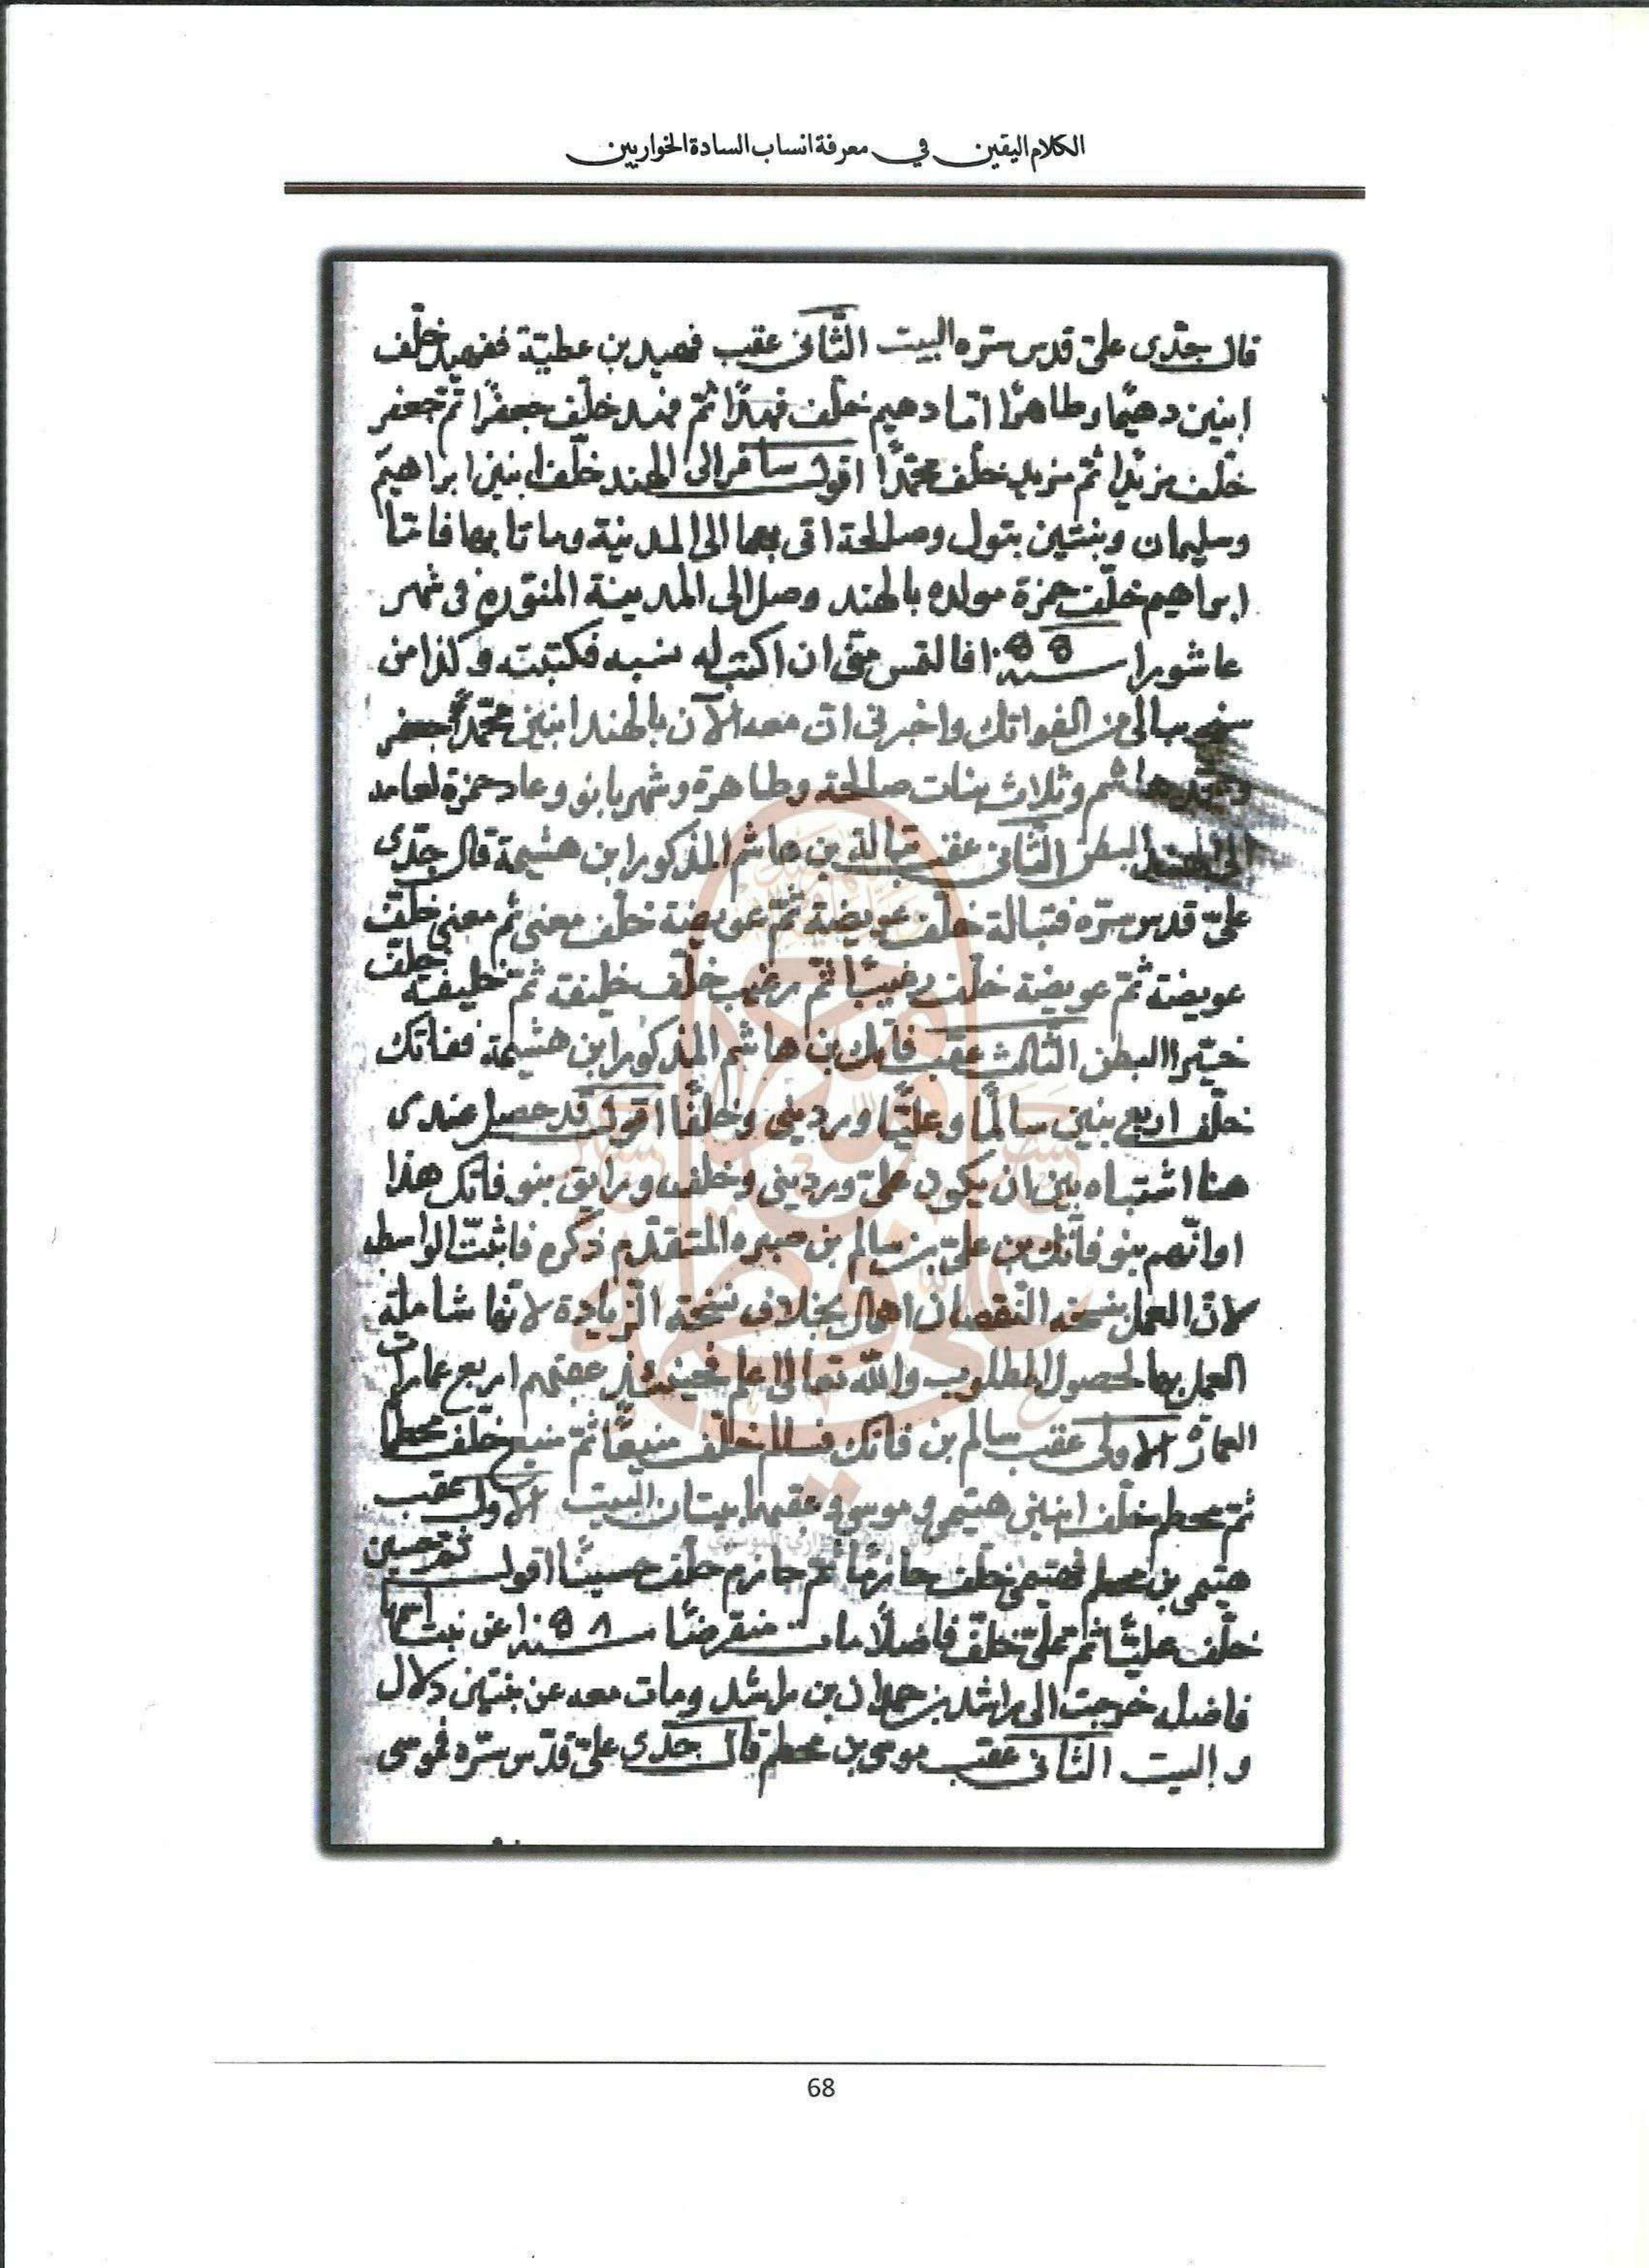 الكلام اليقين في معرفة انساب السادة الخواريين
قال جدّى علىّ قدس سرّه البيت الثّانى عقب فهيد بن عطيّة ففهيد خلّف
ابنين دهيمًا وطاهرًا امّا دهيم خلّف فهدًا ثمّ فهد خلّف جعفرًا ثمّ جعفر
خلّف مزيدًا ثمّ مزيد خلّف محمّدًا اقول سافر الى الهند خلّف ابنين ابراهيم
وسليمان وبنتين بتول وصالحة اتى بهما الى المدينة وماتا بها فامّا
ابراهيم خلّف حمزة مولده بالهند وصل الى المدينة المنوّرة فى شهر
عاشورا سنة فالتمس منّى ان اكتب له نسبه فكتبته وكذا من
من الفواتك واخبرنى انّ معه الآن بالهند ابنين محمّد جعفر
ومحمّد هاشم وثلاث بنات صالحة وطاهرة وشهربانو وعاد حمزة لعامه
الى الهند البطن الثّانى عقب قبالة بن هاشم المذكور ابن هشيمة قال جدّى
علىّ قدس سرّه فقبالة خلّف عويضة ثمّ عويضة خلّف معنى ثم معنى خلّف
عويضة ثمّ عويضة خلّف رضيبًا ثمّ رضيب خلّف خليفة ثمّ خليفة خلّف
البطن الثّالث عقب فاتك بن هاشم المذكور ابن هشيمة ففاتك
خلّف اربع بنين سالمًا وعليًّا ورديني وخلفًا اقول قد حصل عندى
هنا اشتباه بين ان يكون علىّ ورديني وخلف ورايق بنو فاتك هذا
او انّهم بنو فاتك بن علىّ بن سالم بن المتقدّم ذكره فاثبتّ الواسط
لانّ العمل بنسخة النّقصان اهمال بخلاف نسخة الزّيادة لانّها شاملة
العمل بها لحصول المطلوب والله تعالى اعلم فحينئذٍ عقبهم اربع عمارات
العمارة الاولى عقب سالم بن فاتك فسالم خلّف منيعًا ثمّ منيع خلّف محطم
ثمّ محطم خلّف ابنين هتيمى وموسى وعقبهما بيتان البيت الاول عقب
هتيمى بن محطم فهتيمى خلّف حازمًا ثمّ حازم خلّف حسينًا اقول ثمّ حسين
خلّف عليًّا ثمّ علىّ خلّف فاضلًا مات منقرضًا سنة عن بنت اسمها
فاضله خرجت الى راشد بن حملان بن راشد ومات معه عن بنتين دلال
و البيت الثّانى عقب موسى بن محطم قال جدّى علىّ قدّس سرّه فموسى
68